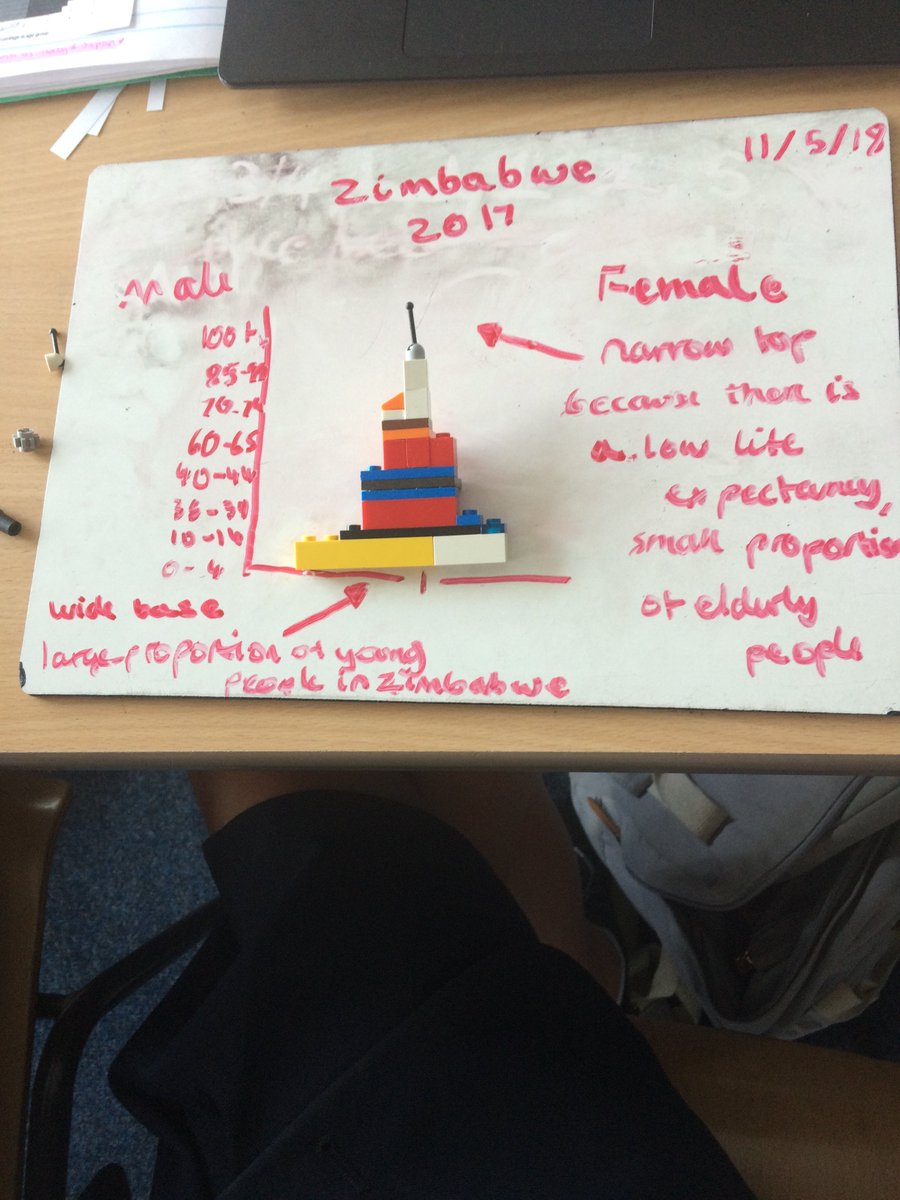 11/5/18
Zimbabwe
2017
Male
Female
100+
85-99
70-74
60-65
40-44
35-39
10-14
0-4
narrow top
because there is
a low life
expectancy,
small proportion
of elderly
people
wide base
large proportion of young
people in Zimbabwe